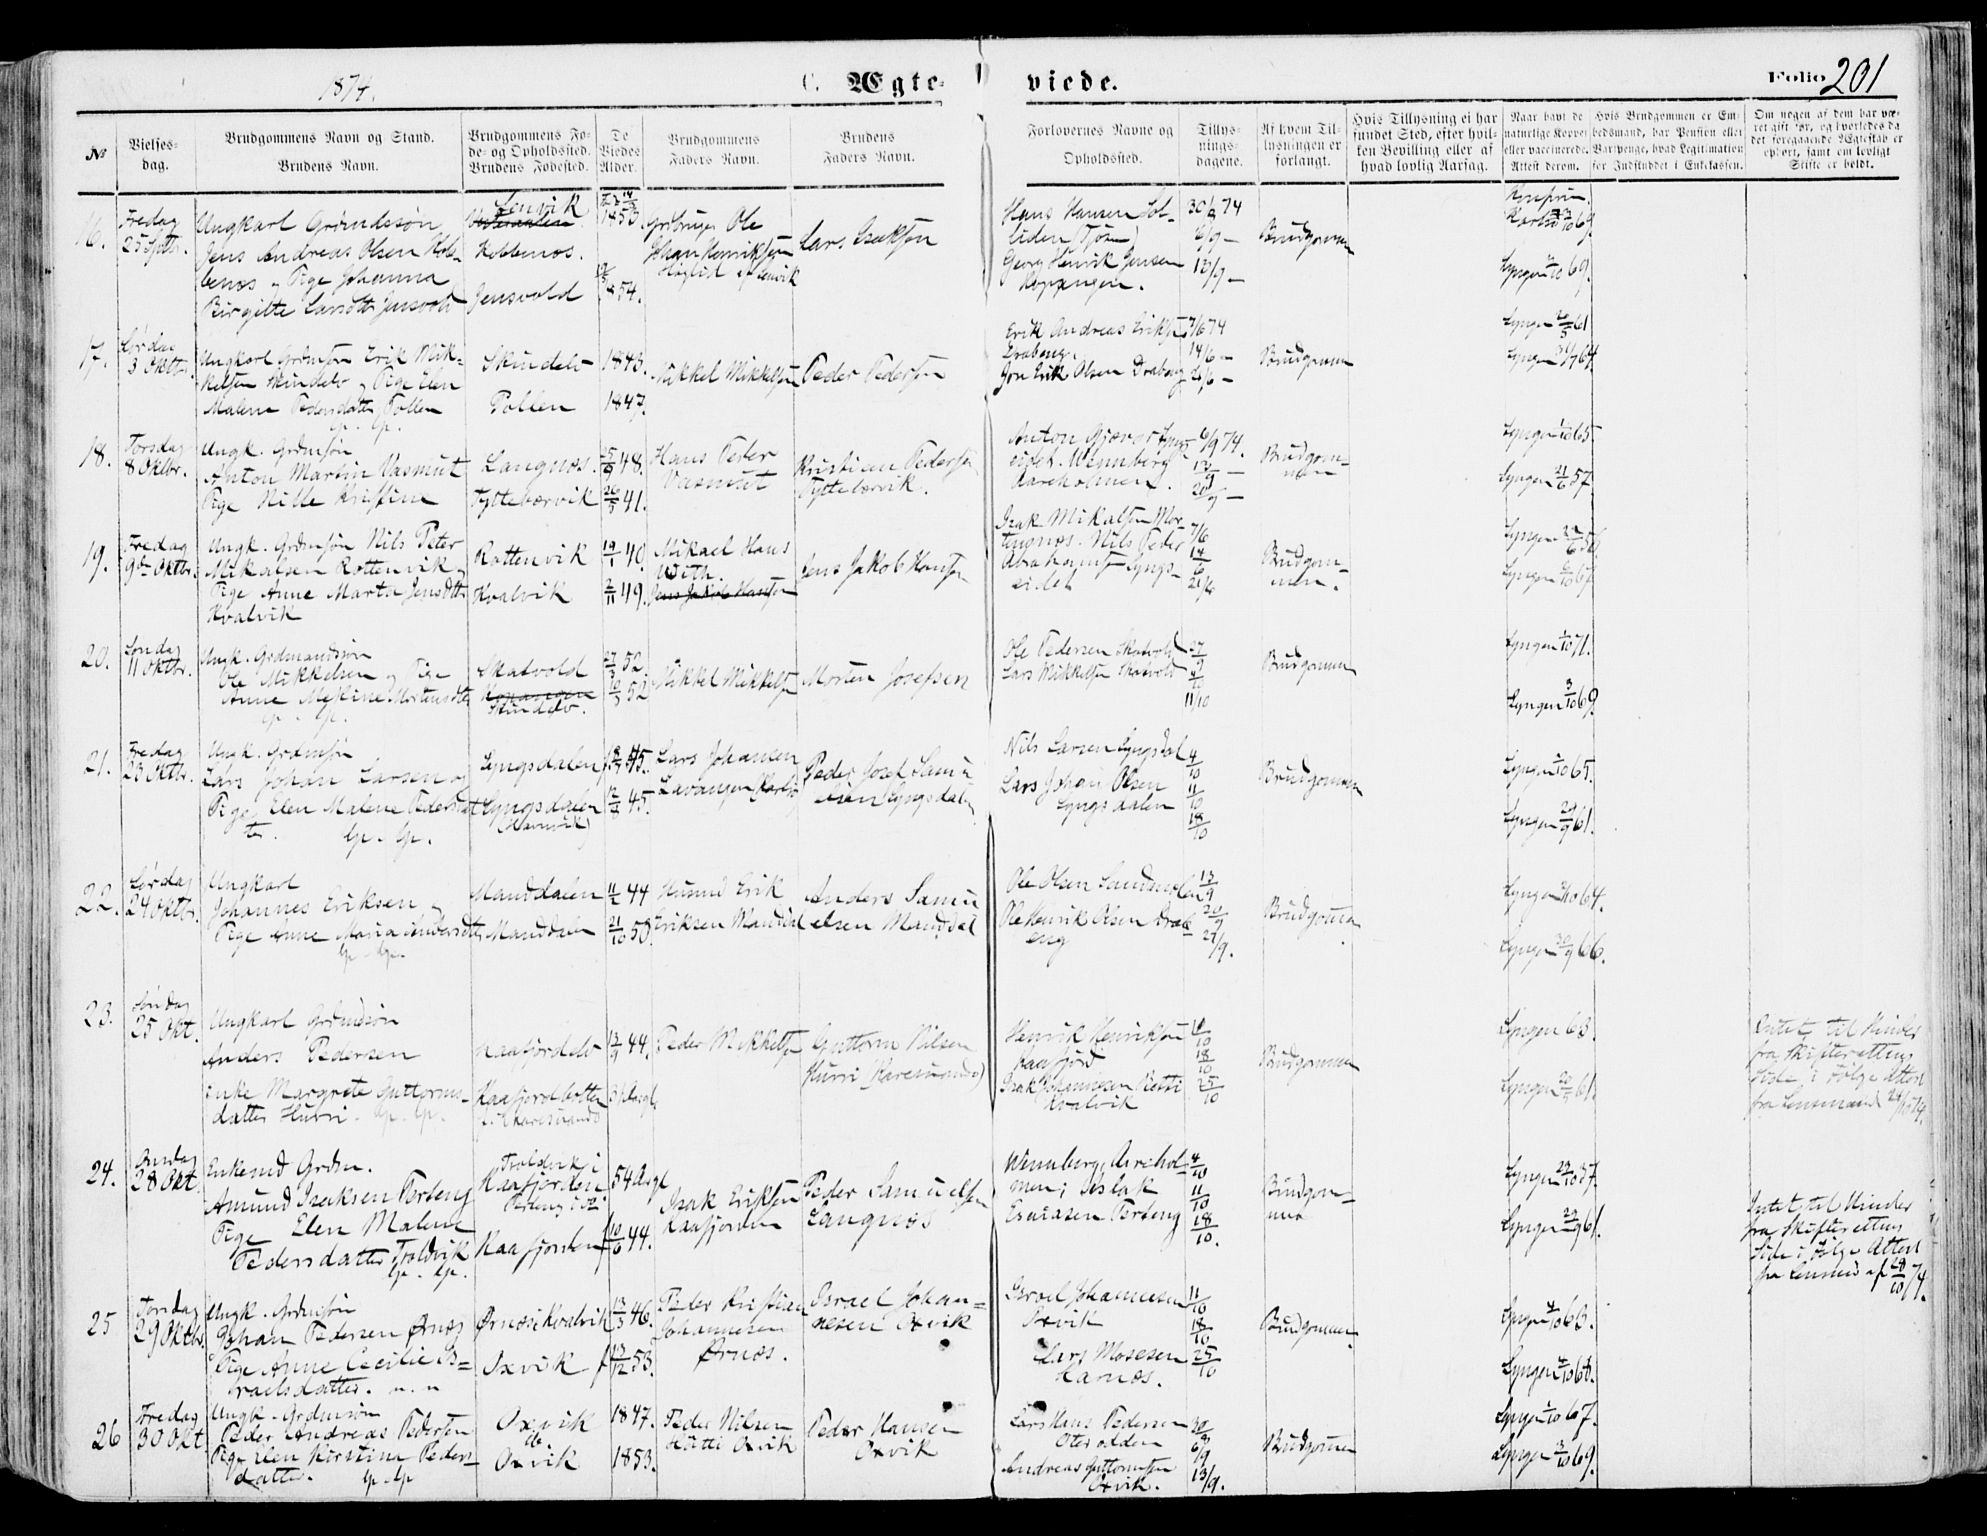 1874.
C. Ægte-
viede.
Folio 201
№
Vielses-
dag.
Brudgommens Navn og Stand.
Brudens Navn.
Brudgommens Fø-
de- og Opholdssted.
Brudens Fødested.
De
Viedes
Alder.
Brudgommens
Faders Navn.
Brudens
Faders Navn.
Forlovernes Navne og
Opholdssted.
Tillys-
nings-
dagene.
Af hvem Til-
lysningen er
forlangt.
Hvis Tillysning ei har
fundet Sted, efter hvil-
ken Bevilling eller af
hvad lovlig Aarsag.
Naar havt de
naturlige Kopper
eller vaccinerede.
Attest derom.
Hvis Brudgommen er Em-
bedsmand, har Pension eller
Vartpenge, hvad Legitimation
for Indskuddet i Enkekassen.
Om nogen af dem har væ-
ret gift før, og hvorledes da
det foregaaende Ægteskab er
ophørt, samt om lovligt
Skifte er holdt.
16.
Fredag
25 Septbr.
Ungkarl Grdmdssøn
Jens Andreas Olsen Kob-
benæs og Pige Johanna
Birgitte Larsdtr Jensvold
Lenvik
Kobbenes.
Jensvold
1853.
54.
Grdbruger Ole
Johan Henriksen
Høglid af Lenvik
Lars Isaksen
Hans Hansen Sol-
liden (Tjøsen)
Georg Henrik Jensen
Koppangen.
30/8 74
6/9 —
13/9 —
Brudgommen
Karlsø 69.
Lyngen 69.
17.
Lørdag
3 Oktbr.
Ungkarl Grdmsøn Erik Mik-
kelsen Skindelv og Pige Elen
Malene Pedersdatter, Pollen
lp. lp.
Skindelv
Pollen
1843.
1847.
Mikkel Mikkelsen
Peder Pedersen
Erik Andreas Eriksen
Drabeng.
Jon Erik Olsen Drabeng
7/6 74
14/6 —
21/6 —
Brudgommen
Lyngen 61
Lyngen 64.
18.
Torsdag
8 Oktbr.
Ungk. Grdmsøn
Anton Martin Vasmut
Pige Nille Kristine
Langnæs.
Tyttebærvik
25/9 48.
26/5 41.
Hans Peder
Vasmut
Kristian Pedersen
Tyttebærvik.
Anton Gjæver Lyngs-
eidet. Wennberg
Aareholmen.
6/9 74.
13/9 —
20/9 —
Brudgom-
men
Lyngen 1/10 65.
Lyngen 21/6 57.
19.
Fredag
9de Oktbr.
Ungk. Grdmsøn Nils Peter
Mikalsen Rottenvik og
Pige Anne Marta Jensdtr
Kvalvik
Rottenvik
Kvalvik
19/1 40.
2/11 49.
Mikael Hans
With.
Jens Jakob Hansen
Jens Jakob Hansen
Isak Mikalsen Mor-
tensnæs. Nils Peder
Abrahamsen Lyngs-
eidet
7/6
14/6
21/6
Brudgom-
men.
Lyngen 56
Lyngen 67.
20.
Søndag
11 Oktbr.
Ungk. Grdmandssøn
Ole Mikkelsen og Pige
Anne Mortensdtr
lp. lp.
Skatvold
Skindelv.
27/3 52.
52.
Mikkel Mikkelsen
Morten Josefsen
Ole Pedersen Skatvold
Lars Mikkelsen Skatvold
27/9
4/10
11/10
Brudgommen
Lyngen 1/10 71.
Lyngen 3/10 69.
21.
Fredag
23 Oktbr.
Ungk. Grdmsøn
Lars Johan Larsen og
Pige Elen Malene Pedersdat-
ter. lp. lp.
Lyngsdalen
Lyngsdalen
45.
45.
Lars Johansen
Lavangen (Karlsø)
Peder Josef Samu-
elsen Lyngsdalen
Nils Larsen Lyngsdal
Lars Johan Olsen
Lyngsdalen
4/10
11/10
18/10
Brudgommen
Lyngen 1/10 65.
Lyngen 29/9 61.
22.
Lørdag
24 Oktbr.
Ungkarl
Johannes Eriksen og
Pige Anne Maria Andersdtr
lp. lp.
Manddalen
Manddalen
44
21/10 50.
Husmd Erik
Eriksen Manddal
Anders Samu-
elsen Manddal
Ole Olsen Samdmælen
Ole Henrik Olsen Drab-
eng
13/9
20/9
27/9.
Brudgomm
Lyngen 64.
Lyngen 30/9 66.
23.
Søndag
25 Okt.
Ungkarl Grdmdsøn
Anders Pedersen
Inke Margrete Guttorms-
datter Hurri. lp. lp.
Kaafjordelv
Kaafjordbotten
f. i Karesuando
13/9 44.
31 Aargl.
Peder Mikkelsen
Guttorm Nilsen
Hurri (Karesuando)
Henrik Henriksen
Kaafjord
Isak Johannesen Rieti
Kvalvik
11/10
18/10
25/10
Brudgommen
Lyngen 63.
Lyngen 61.
Intet til Hinder
fra Skifterettens
Side i Følge Attest
fra Lensmand 24/10 74.
24.
Onsdag
28 Okt.
Enkemd Grdm.
Amund Isaksen Perteng
Pige Elen Malene
Pedersdatter, Troldvik
lp. lp.
Troldvik i
Kaafjorden
Kaafjorden
54 Aargl
10/6 44.
Isak Eriksen
Kaafjorden
Peder Samuelsen
Langnæs
Wennberg, Aarehol-
men; Aslak
Esaiasen Perteng
4/10
11/10
18/10.
Brudgom-
men
Lyngen 57.
Lyngen 29/9 61.
Intet til Hinder
fra Skifterettens
Side i Følge Attest
fra Lensmd af 28/10 74.
25
Torsdag
29 Oktbr.
Ungk. Grdmsøn
Johan Pedersen Ørnæs
Pige Anne Cecilie Is-
raelsdatter. n. n
Ørnæs i Kvalvik
Oxvik
13/3 46.
13/12 53.
Peder Kristian
Johannesen
Ørnæs.
Israel Johan-
nesen Oxvik
Israel Johannesen
Oxvik
Lars Mosesen
Hornæs.
11/10
18/10
25/10
Brudgommen
Lyngen 63.
Lyngen 68.
26
Fredag
30 Okt
Ungk. Grdmsøn
Peder Andreas Pedersen
Pige Elen Kirstina Peders-
datter. lp. lp
Oxvik
Oxvik
1847.
1853.
Peder Nilsen
Hætti Oxvik
Peder Hansen
Oxvik
Lars Hans Pedersen
Oterodden
Andreas Guttormsen
Oxvik.
30/8
6/9
13/9.
Brudgommen
Lyngen 1/10 67.
Lyngen 3/10 69.